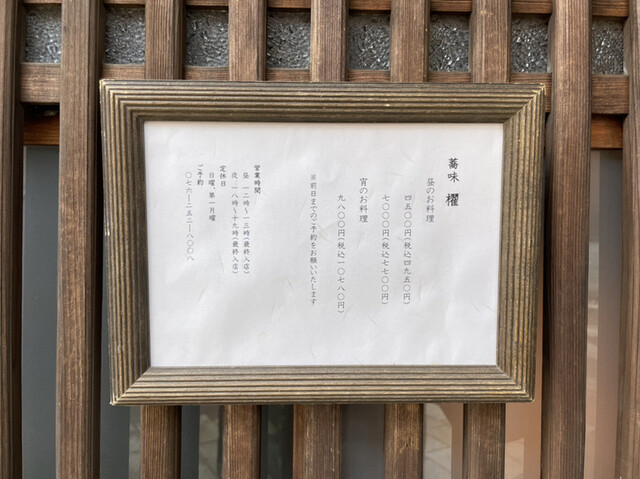 蕎味 櫂
昼のお料理
四五〇〇円(税込四九五〇円)
七〇〇〇円(税込七七〇〇円)
宵のお料理
九八〇〇円(税込一〇七八〇円)
※前日までのご予約をお願いいたします
営業時間
昼 一二時～一三時(最終入店)
夜 一八時～十九時(最終入店)
定休日
日曜、第一月曜
ご予約
〇七六ー二五二ー八〇〇八